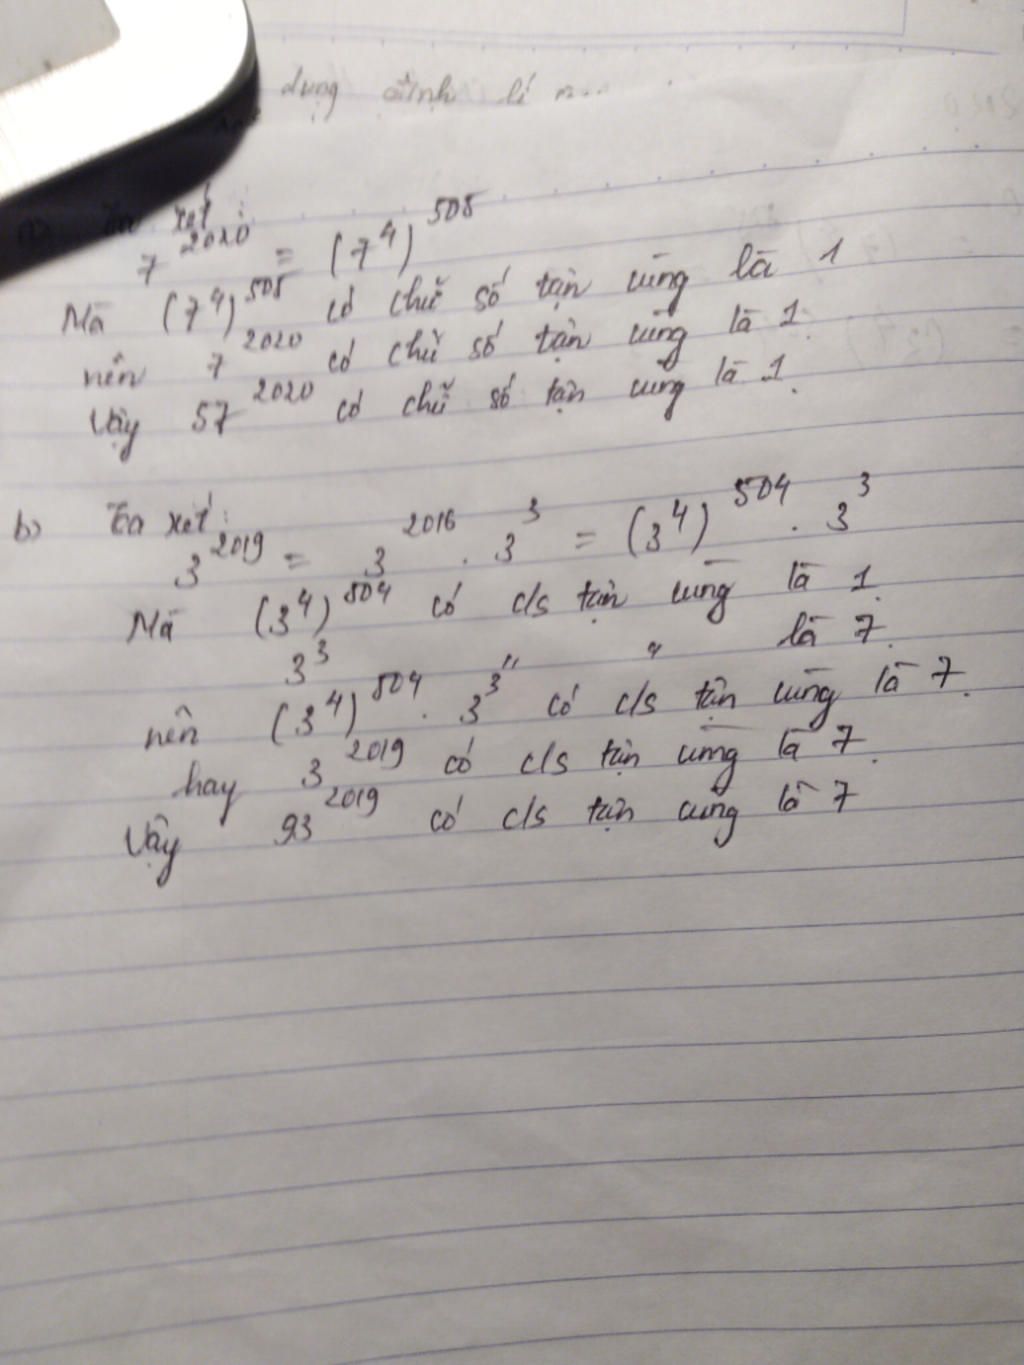 dụng định lí
a) Ta xét:
7^2020 = (7^4)^505
Mà (7^4)^505 có chữ số tận cùng là 1
nên 7^2020 có chữ số tận cùng là 1.
Vậy 57^2020 có chữ số tận cùng là 1.
b) Ta xét:
3^2019 = 3^2016 . 3^3 = (3^4)^504 . 3^3
Mà (3^4)^504 có c/s tận cùng là 1.
3^3 " " là 7.
nên (3^4)^504 . 3^3 có c/s tận cùng là 7.
hay 3^2019 có c/s tận cùng là 7.
Vậy 93^2019 có c/s tận cùng là 7